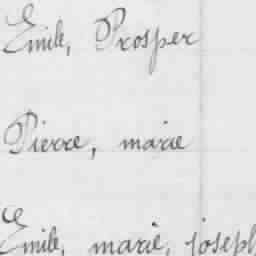 Emile, Prosper
Pierre, marie
Emile, marie, joseph